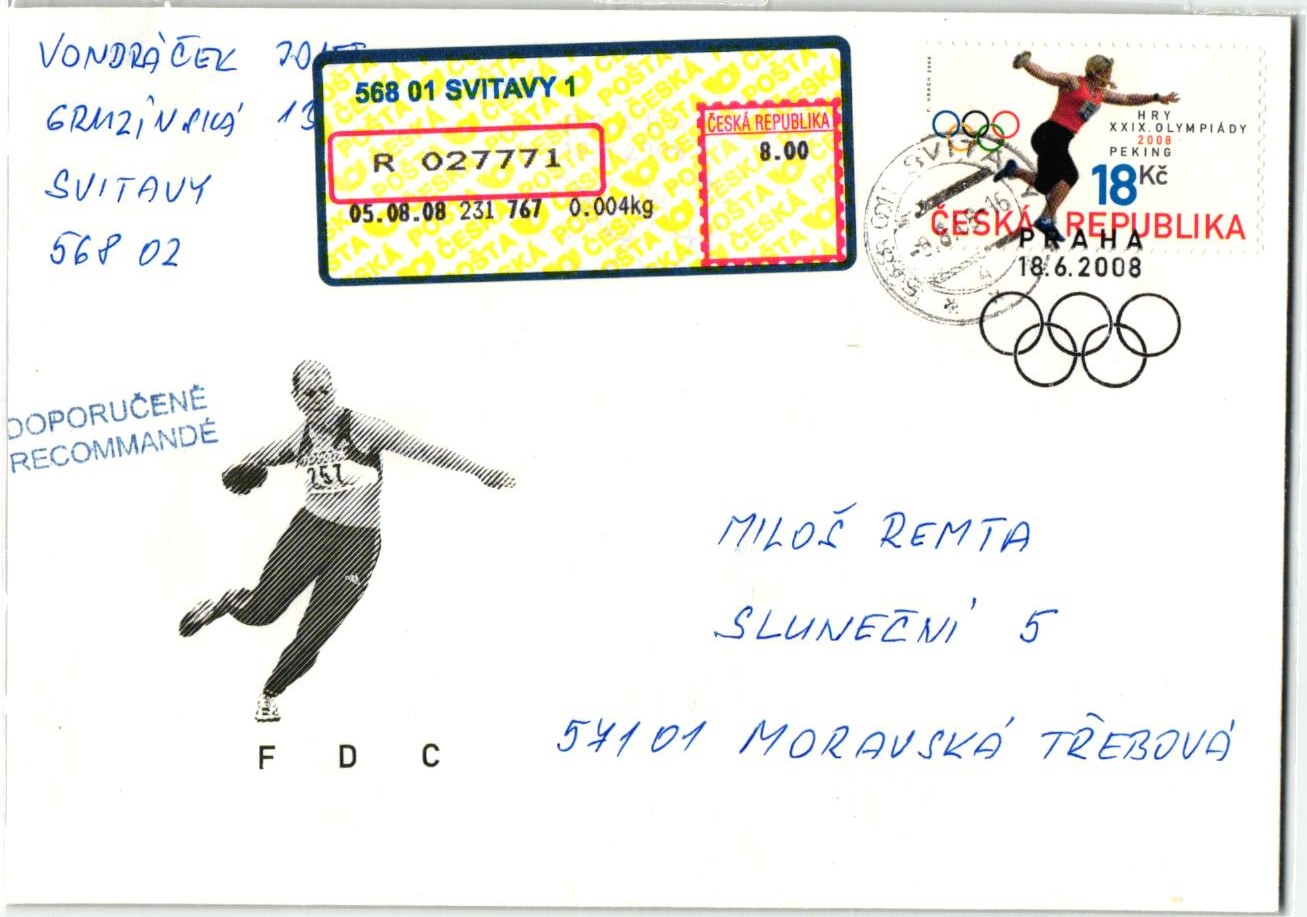 VONDRÁČEK
GRUZÍNSKÁ 13
SVITAVY
568 02
568 01 SVITAVY 1
R 027771
05.08.08 231 767 0.004kg
ČESKÁ REPUBLIKA
8.00
HRY
XXIX. OLYMPIÁDY
2008
PEKING
18 Kč
ČESKÁ REPUBLIKA
PRAHA
18.6.2008
DOPORUČENĚ
RECOMMANDÉ
257
F D C
MILOŠ REMTA
SLUNEČNÍ 5
57101 MORAVSKÁ TŘEBOVÁ